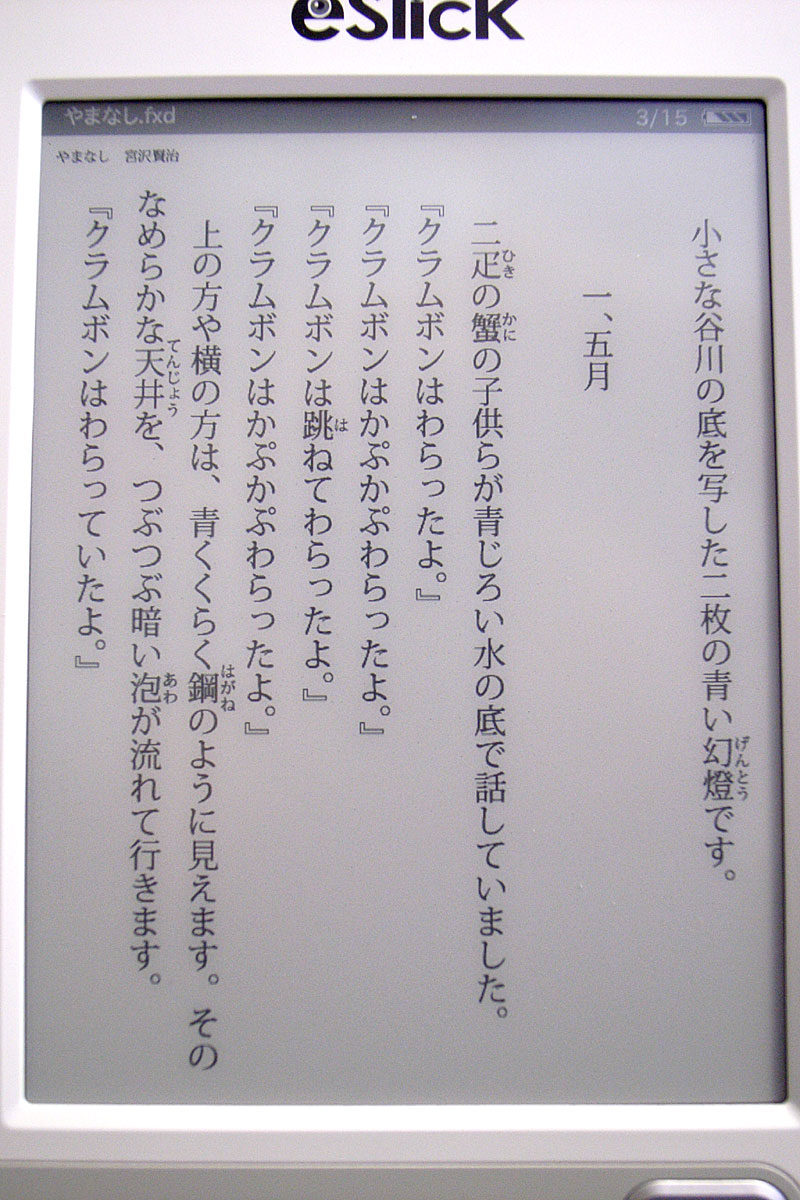 eSlick
やまなし.fxd 3/15
やまなし 宮沢賢治
小さな谷川の底を写した二枚の青い幻燈です。
げんとう
一、五月
二疋の蟹の子供らが青じろい水の底で話していました。
ひき かに
『クラムボンはわらったよ。』
『クラムボンはかぷかぷわらったよ。』
『クラムボンは跳ねてわらったよ。』
は
『クラムボンはかぷかぷわらったよ。』
上の方や横の方は、青くくらく鋼のように見えます。その
はがね
なめらかな天井を、つぶつぶ暗い泡が流れて行きます。
てんじょう あわ
『クラムボンはわらっていたよ。』